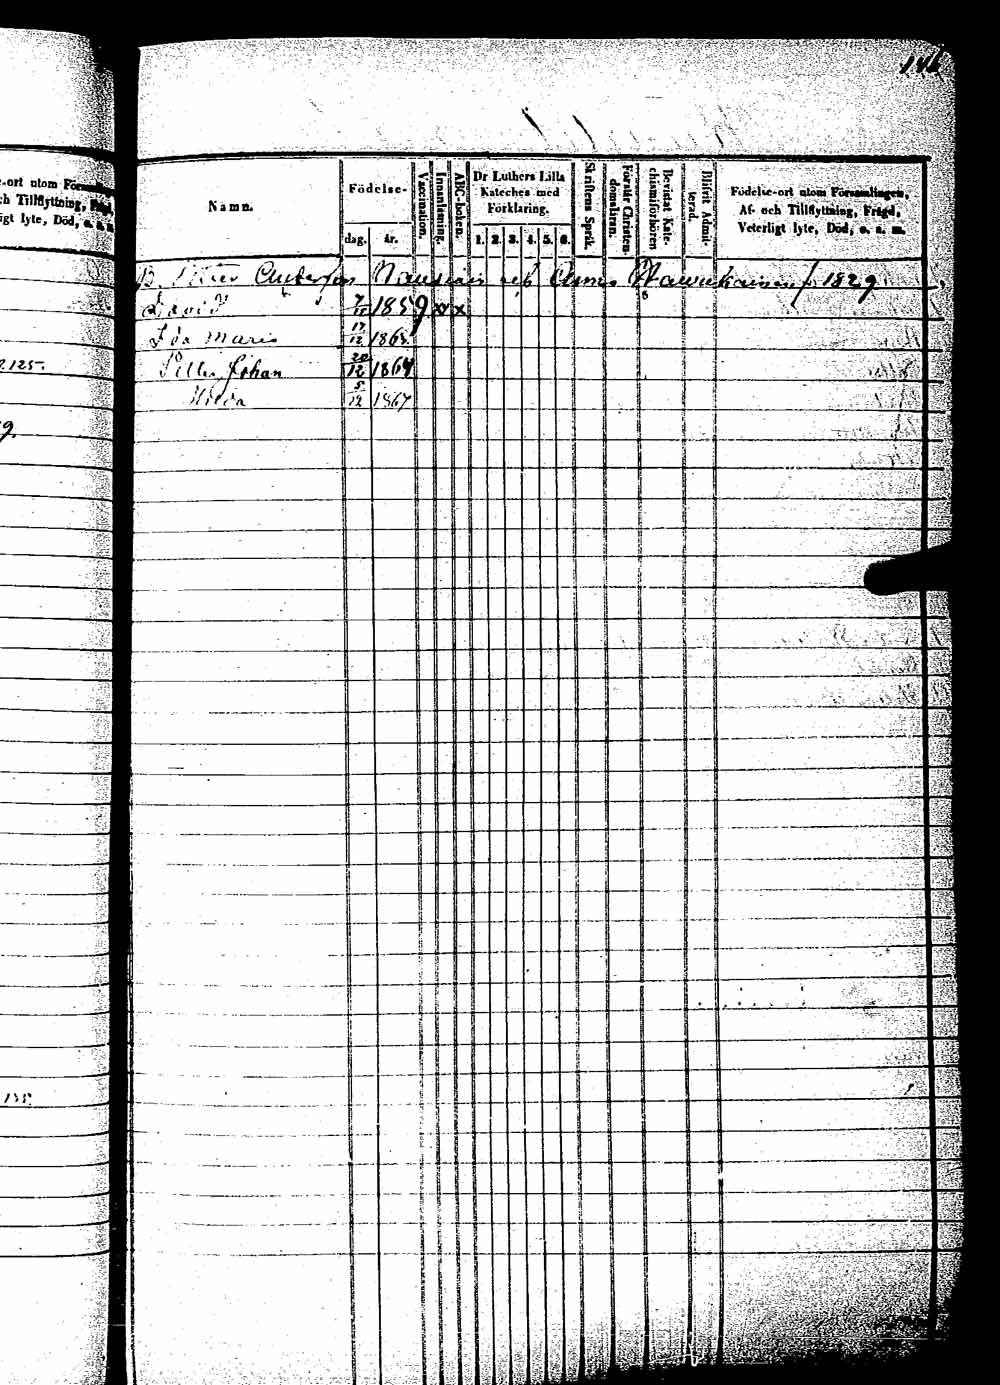 146
e-ort utom Församlingen,
ch Tillflyttning, Frägd,
igt lyte, Död, o. s. m.
Namn.
Födelse-
dag. år.
Vaccination.
Innanläsning.
ABC-boken.
Dr Luthers Lilla
Kateches med
Förklaring.
1. 2. 3. 4. 5. 6.
Skriftens Språk.
Förstår Christen-
domsläran.
Bevistat Kate-
chismiförhören
Blifvit Admit-
terad.
Födelse-ort utom Församlingen,
Af- och Tillflyttning, Frägd,
Veterligt lyte, Död, o. s. m.
B. Petter Andersson 1829
David 7/10 1859 x x
Ida Maria 17/12 1863.
Petter Johan 20/12 1864
Hilda 5/12 1867
125.
9.